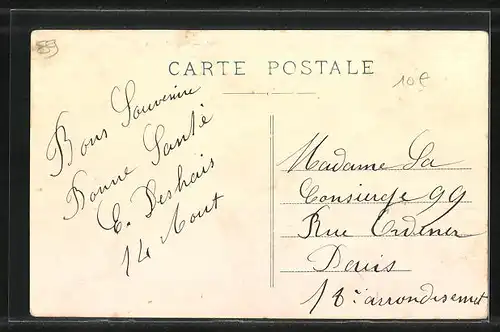 CARTE POSTALE
10€
Bons Souvenire
Bonne Santé
E. Deshais
14 Aout
Madame La
Consierge 99
Rue Ordener
Paris
18e arrondisemet